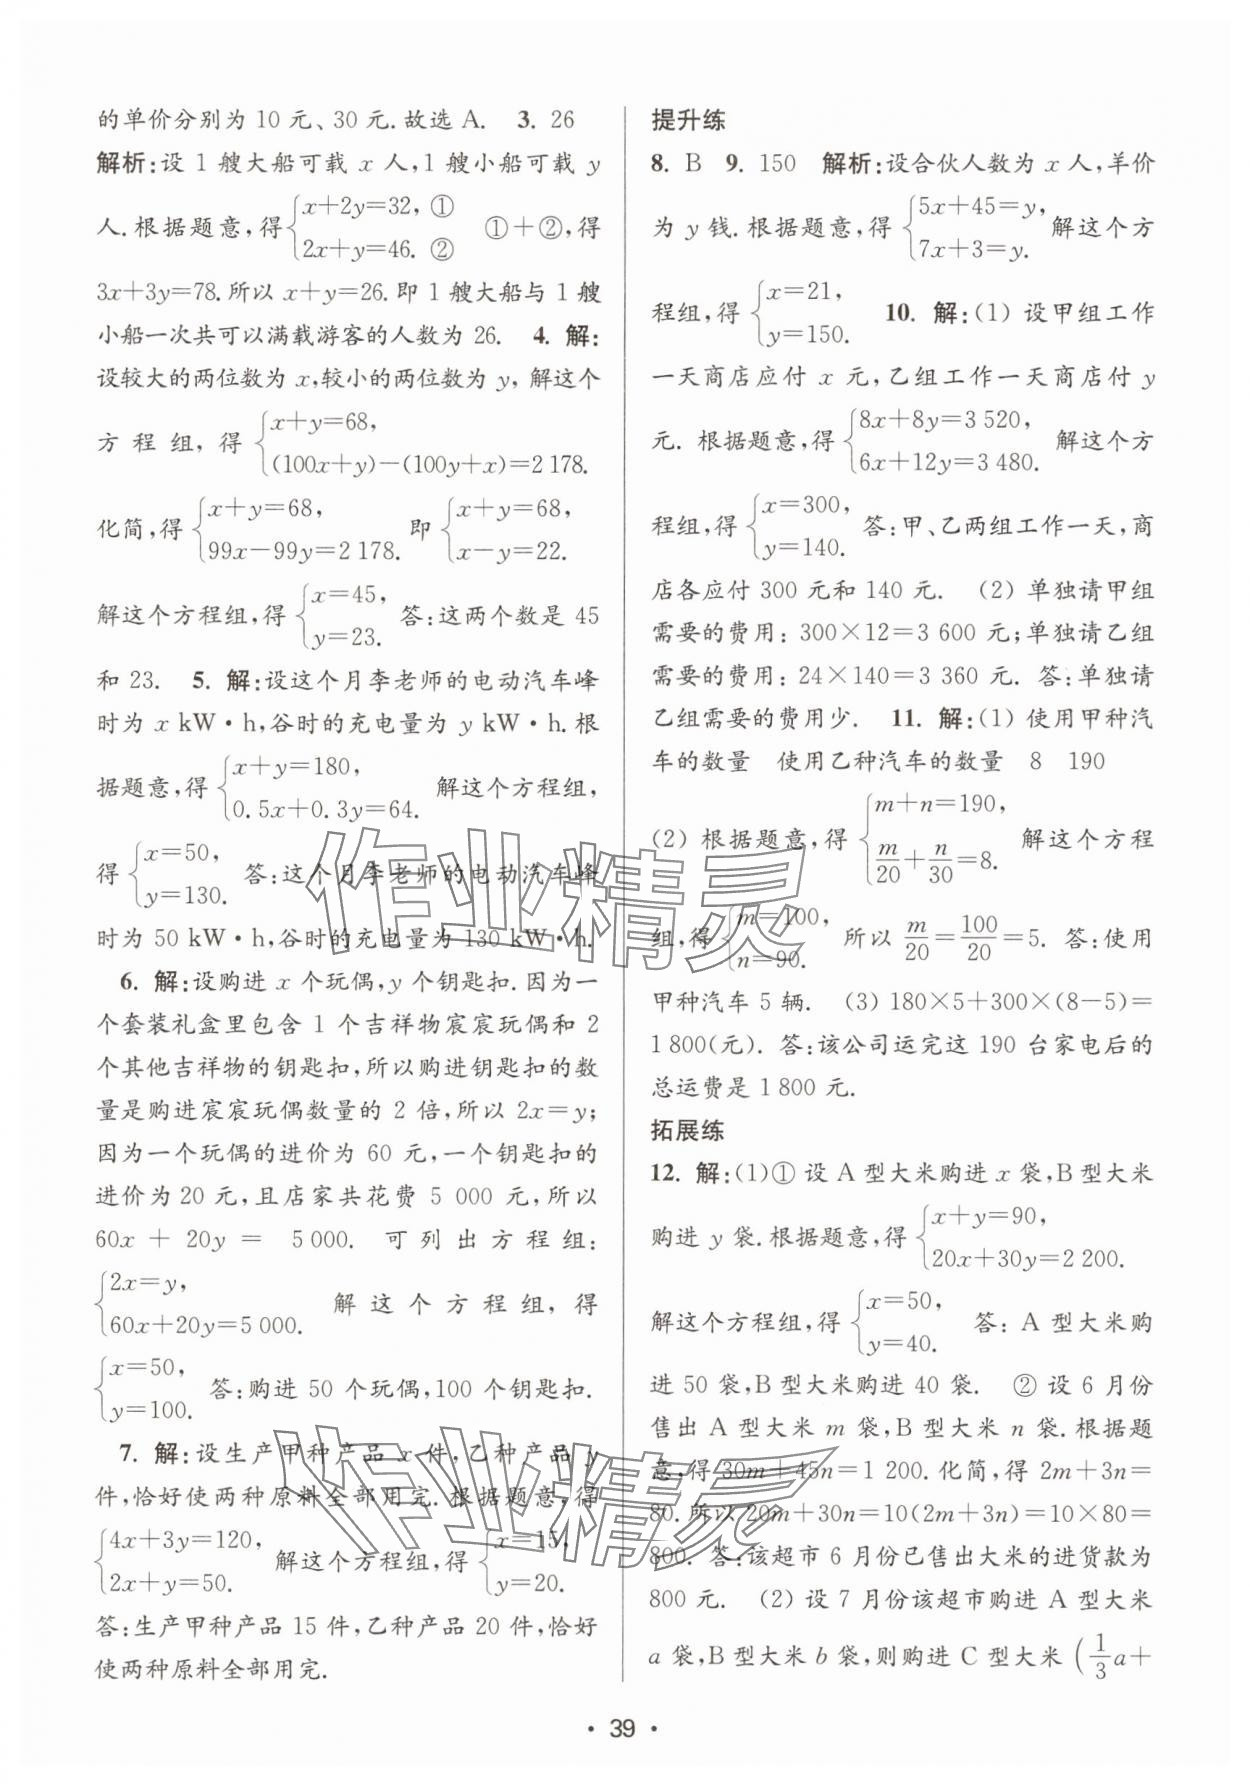 的单价分别为 10 元、30 元.故选 A. 3. 26
解析:设 1 艘大船可载 x 人,1 艘小船可载 y
人.根据题意,得{x+2y=32, ① 2x+y=46. ② ①+②,得
3x+3y=78.所以 x+y=26.即 1 艘大船与 1 艘
小船一次共可以满载游客的人数为 26. 4. 解:
设较大的两位数为 x,较小的两位数为 y, 解这个
方程组,得 {x+y=68, (100x+y)-(100y+x)=2 178.
化简,得 {x+y=68, 99x-99y=2 178. 即 {x+y=68, x-y=22.
解这个方程组,得 {x=45, y=23. 答:这两个数是 45
和 23. 5. 解:设这个月李老师的电动汽车峰
时为 x kW·h,谷时的充电量为 y kW·h.根
据题意,得 {x+y=180, 0.5x+0.3y=64. 解这个方程组,
得 {x=50, y=130. 答:这个月李老师的电动汽车峰
时为 50 kW·h,谷时的充电量为 130 kW·h.
6. 解:设购进 x 个玩偶,y 个钥匙扣.因为一
个套装礼盒里包含 1 个吉祥物宸宸玩偶和 2
个其他吉祥物的钥匙扣,所以购进钥匙扣的数
量是购进宸宸玩偶数量的 2 倍,所以 2x=y;
因为一个玩偶的进价为 60 元,一个钥匙扣的
进价为 20 元,且店家共花费 5 000 元,所以
60x + 20y = 5 000. 可列出方程组:
{2x=y, 60x+20y=5 000. 解这个方程组,得
{x=50, y=100. 答:购进 50 个玩偶,100 个钥匙扣.
7. 解:设生产甲种产品 x 件,乙种产品 y
件,恰好使两种原料全部用完.根据题意,得
{4x+3y=120, 2x+y=50. 解这个方程组,得 {x=15, y=20.
答:生产甲种产品 15 件,乙种产品 20 件,恰好
使两种原料全部用完.
提升练
8. B 9. 150 解析:设合伙人数为 x 人,羊价
为 y 钱.根据题意,得 {5x+45=y, 7x+3=y. 解这个方
程组,得 {x=21, y=150. 10. 解:(1) 设甲组工作
一天商店应付 x 元,乙组工作一天商店付 y
元. 根据题意,得 {8x+8y=3 520, 6x+12y=3 480. 解这个方
程组,得 {x=300, y=140. 答:甲、乙两组工作一天,商
店各应付 300 元和 140 元. (2) 单独请甲组
需要的费用: 300×12=3 600 元;单独请乙组
需要的费用: 24×140=3 360 元. 答:单独请
乙组需要的费用少. 11. 解:(1) 使用甲种汽
车的数量 使用乙种汽车的数量 8 190
(2) 根据题意,得 {m+n=190, m/20+n/30=8. 解这个方程
组,得 {m=100, n=90. 所以 m/20=100/20=5. 答:使用
甲种汽车 5 辆. (3) 180×5+300×(8-5)=
1 800(元). 答:该公司运完这 190 台家电后的
总运费是 1 800 元.
拓展练
12. 解:(1)① 设 A 型大米购进 x 袋,B 型大米
购进 y 袋.根据题意,得 {x+y=90, 20x+30y=2 200.
解这个方程组,得 {x=50, y=40. 答: A 型大米购
进 50 袋,B 型大米购进 40 袋. ② 设 6 月份
售出 A 型大米 m 袋,B 型大米 n 袋.根据题
意,得 30m+45n=1 200.化简,得 2m+3n=
80.所以 20m+30n=10(2m+3n)=10×80=
800. 答:该超市 6 月份已售出大米的进货款为
800 元. (2) 设 7 月份该超市购进 A 型大米
a 袋,B 型大米 b 袋,则购进 C 型大米 (1/3a+
· 39 ·
作业精灵
作业精灵